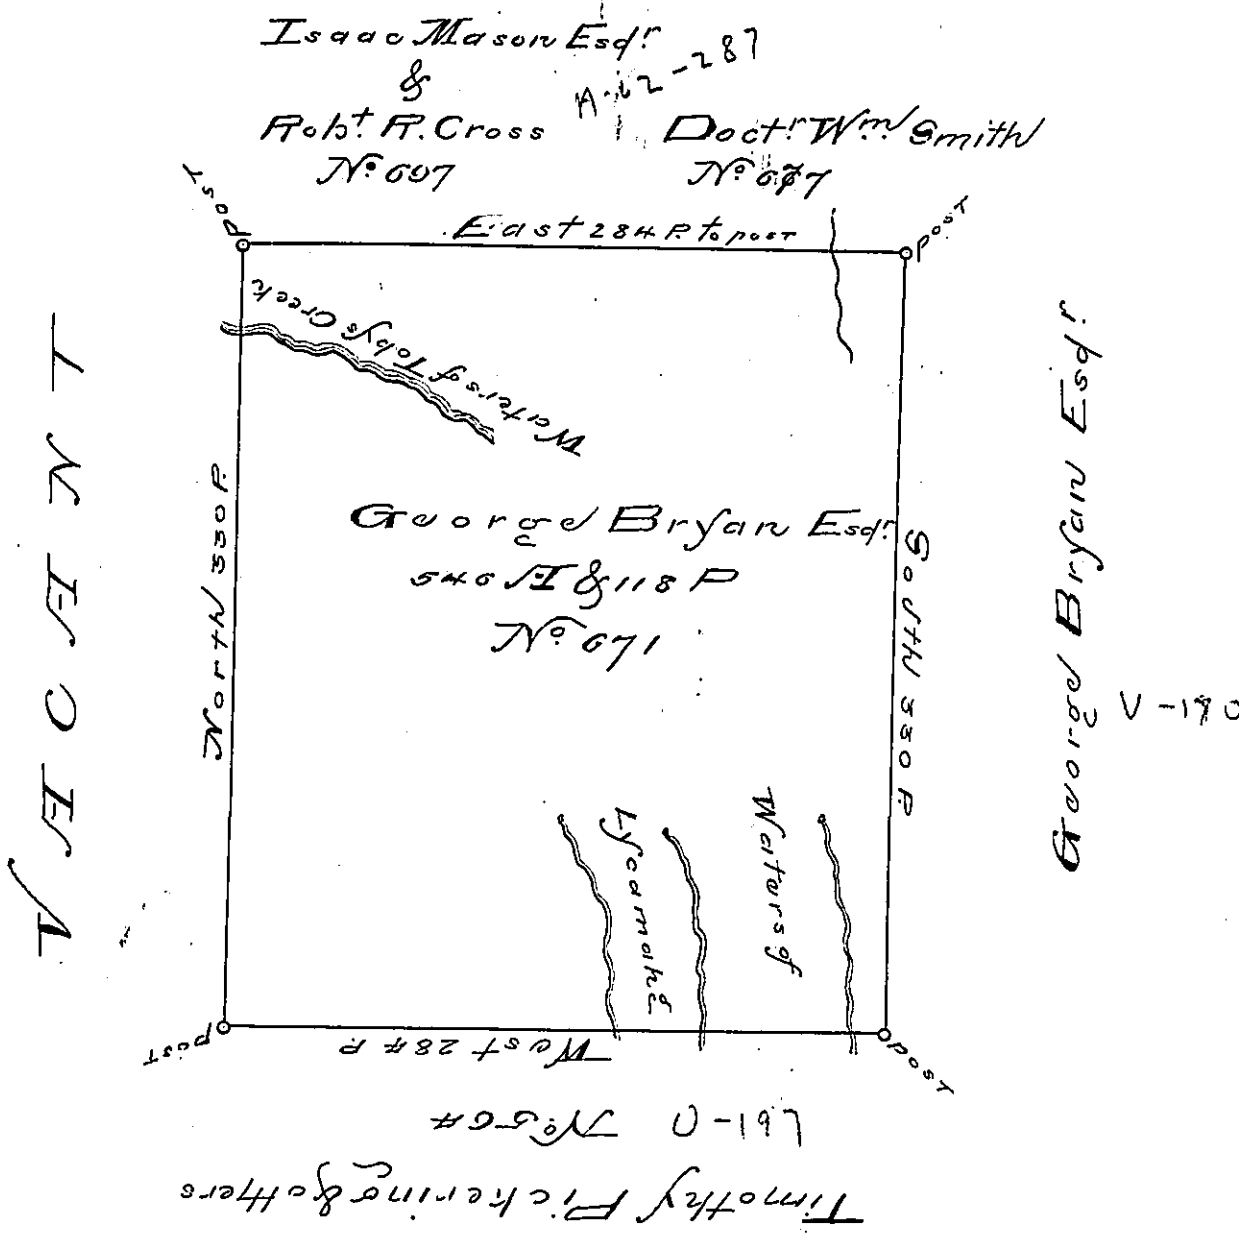 Isaac Mason Esqr.
&
Robt. R. Cross
No 607
A-62-287
Doctr. Wm Smith
No 677
Post
East 284 P. to post
Post
Waters of Tobys Creek
VACANT
North 330 P.
George Bryan Esqr.
546 A & 118 P
No 671
South 330 P.
George Bryan Esqr.
Waters of
Lycamahg
post
West 284 P.
post
No 564
Timothy Pickering & others